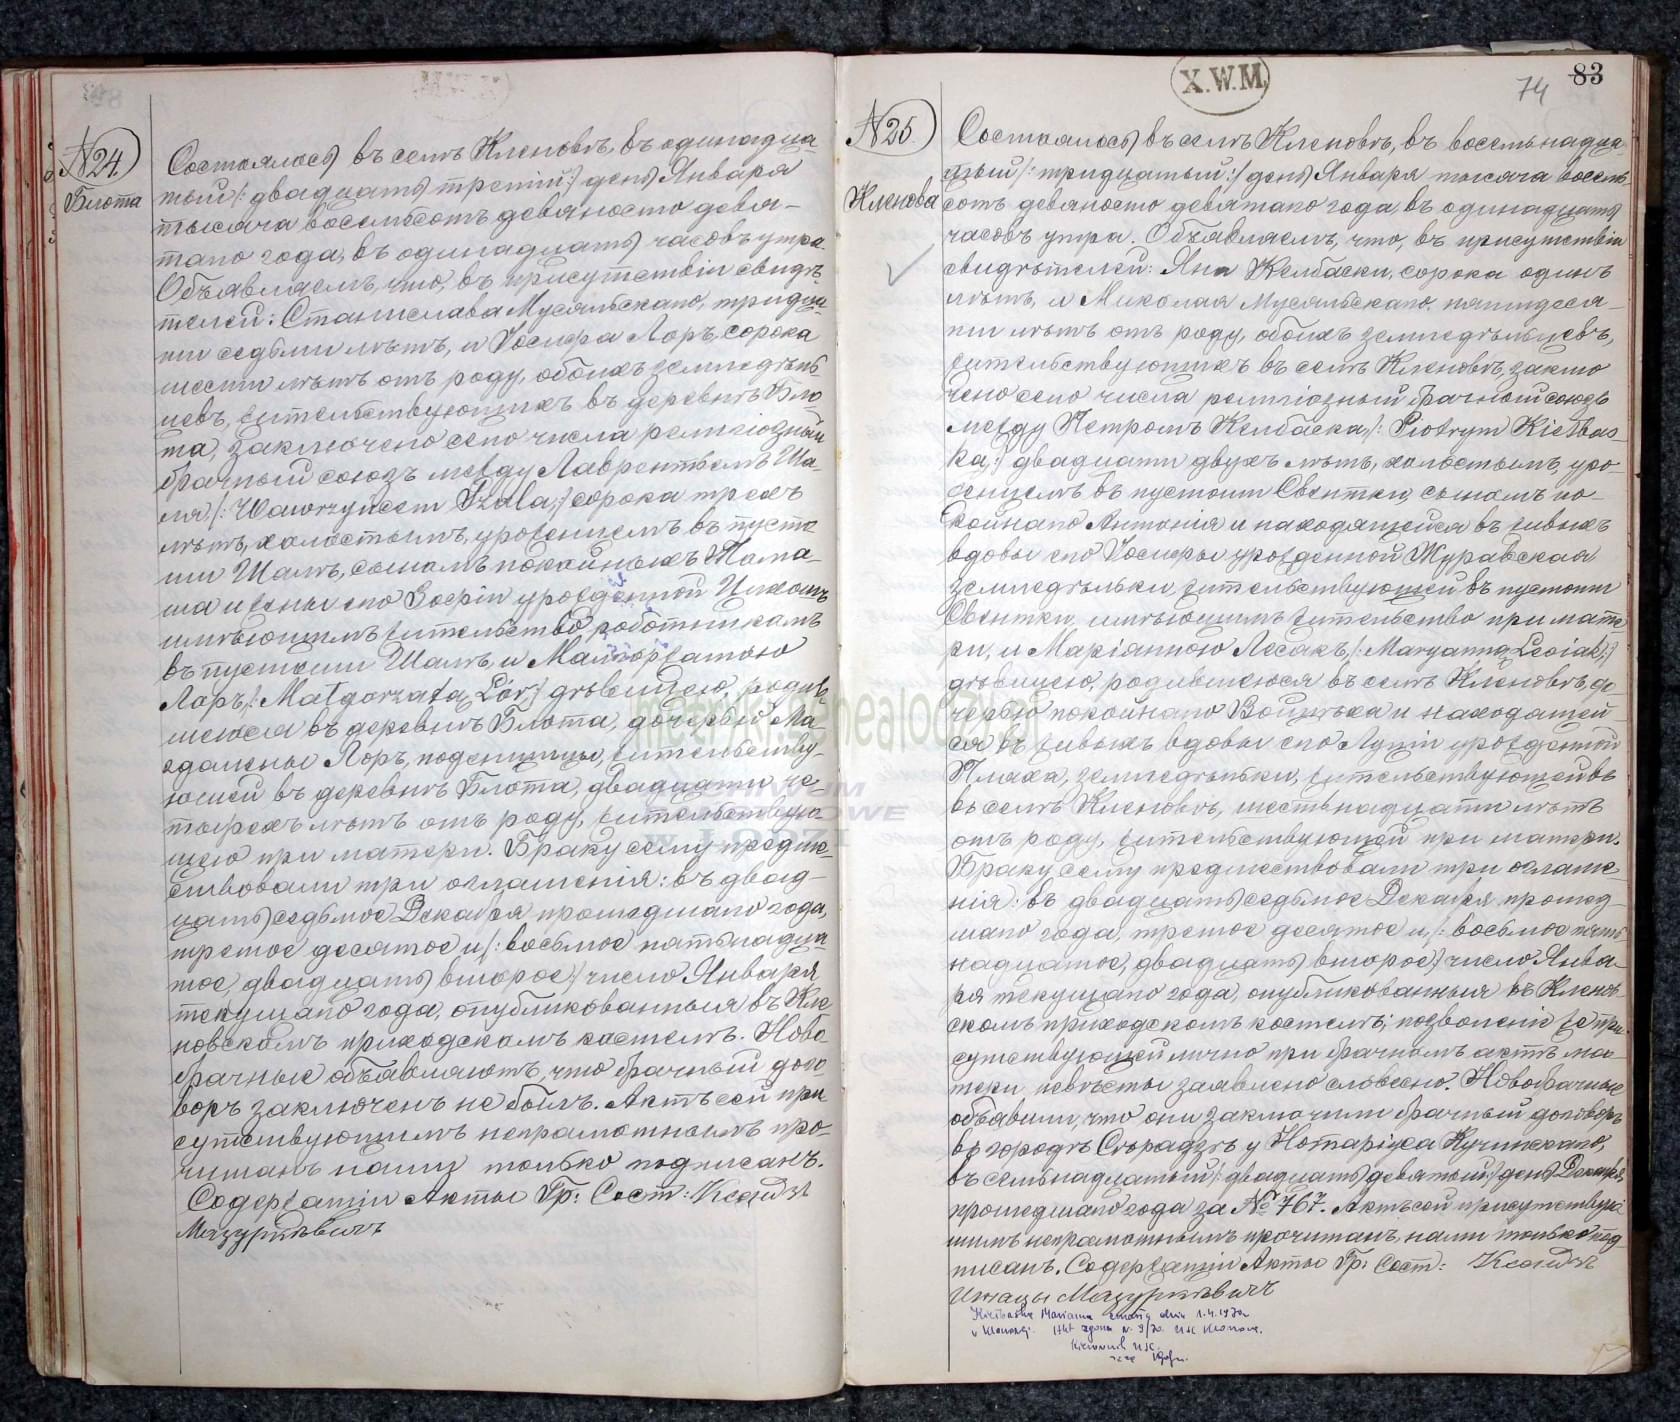 N24.
Блота
Состоялось въ селѣ Кленовѣ, въ одинадца-
тый /: двадцать третій :/ день Января
тысяча восемьсотъ девяносто девя-
таго года, въ одинадцать часовъ утра.
Объявляемъ, что, въ присутствіи свидѣ-
телей: Станислава Мусяльскаго, тридца-
ти седьми лѣтъ, и Іосифа Лоръ, сорока
шести лѣтъ отъ роду, обоихъ земледѣль-
цевъ, жительствующихъ въ деревнѣ Бло-
та, заключено сего числа религіозный
брачный союзъ между Лаврентьемъ Ша-
ля, /: Wawrzyńcem Szala, :/ сорока трехъ
лѣтъ, холостымъ, урожденцемъ въ пусто-
ши Шалѣ, сыномъ покойныхъ Тома-
ша и жены его Зофіи урожденной
имѣющимъ жительство работникомъ
въ пустоши Шалѣ, и Малгоржатою
Лоръ, /: Małgorzatą Lór, :/ дѣвицею, родив-
шеюся въ деревнѣ Блота, дочерью Ма-
гдалены Лоръ, поденщицы, жительству-
ющей въ деревнѣ Блота, двадцати че-
тырехъ лѣтъ отъ роду, жительствую-
щею при матери. Браку сему предше-
ствовали три оглашенія: въ двад-
цать седьмое Декабря прошедшаго года,
третое десятое и /: восьмое пятьнадца-
тое, двадцать второе :/ число Января
текущаго года, опубликованныя въ Кле-
новскомъ приходскомъ костелѣ. Ново-
брачные объявляютъ, что брачный дого-
воръ заключенъ не былъ. Актъ сей при-
сутствующимъ неграмотнымъ про-
читанъ нами только подписанъ.
Содержащій Акты Гр: Сост: Ксендзъ
Мазуркѣвичъ
X.W.M.
74
83
N25.
Кленова
Состоялось въ селѣ Кленовѣ, въ восемьнадца-
тый /: тридцатый :/ день Января тысяча восемь-
сотъ девяносто девятаго года, въ одинадцать
часовъ утра. Объявляемъ, что, въ присутствіи
свидѣтелей: Яна Келбаски, сорока одинъ
лѣтъ, и Миколая Мусяльскаго, пятидеся-
ти лѣтъ отъ роду, обоихъ земледѣльцевъ,
жительствующихъ въ селѣ Кленовѣ, заклю-
чено сего числа религіозный брачный союзъ
между Петромъ Келбаска, /: Piotrym Kiełbas-
ka, :/ двадцати двухъ лѣтъ, холостымъ, уро-
женцемъ въ пустоши Свентки, сыномъ по-
койнаго Антонія и находящейся въ живыхъ
вдовы его Іосифы урожденной Журавская
земледѣльки, жительствующей въ пустоши
Свентки, имѣющимъ жительство при мате-
ри, и Маріанною Лесякъ, /: Maryanną Lesiak, :/
дѣвицею, родившеюся въ селѣ Кленовѣ, до-
черью покойнаго Войцѣха и находящей-
ся въ живыхъ вдовы его Луціи урожденной
Плаха, земледѣльки, жительствующей въ
въ селѣ Кленовѣ, шестьнадцати лѣтъ
отъ роду, жительствующей при матери.
Браку сему предшествовали три оглаше-
нія: въ двадцать седьмое Декабря прошед-
шаго года, третое десятое и, /: восьмое пять-
надцатое, двадцать второе :/ число Янва-
ря текущаго года, опубликованныя въ Кленов-
скомъ приходскомъ костелѣ; позволеніе же при-
сутствующей лично при брачномъ актѣ ма-
тери невѣсты заявлено словесно. Новобрачные
объявили, что они заключили брачный договоръ
въ городѣ Сѣрадзѣ у Нотаріуса Кучинскаго,
въ семьнадцатый /: двадцать девятый :/ день Декабря
прошедшаго года за № 767. Актъ сей присутствую-
щимъ неграмотнымъ прочитанъ, нами только под-
писанъ. Содержащій Акты Гр: Сост: Ксендзъ
Игнацы Мазуркѣвичъ
Kiełbaska Marianna zmarła dnia 1.4.1970
w Klonowej. Akt zgonu nr. 9/70. USC Klonowa.
Kierownik USC.
metryki.genealodzy.pl
ARCHIWUM
PAŃSTWOWE
w ŁODZI